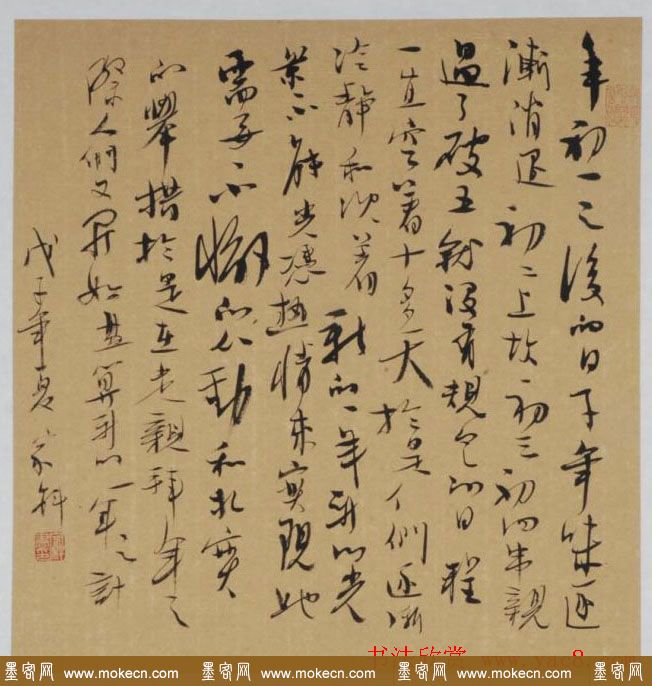 年初一之後的日子年味逐
漸消退初二上坟初三初四串親
過了破五就没有規定的日程
一直空著十多天於是人們逐漸
冷靜和沉著新的一年新的光
景不能光憑热情来實現她
需要不懈的劳動和扎實
的舉措於是在走親拜年之
際人們又開始盘算新的一年之計
戊子年夏 家科
书法欣赏 www.yac8.
墨客网 www.mokecn.com 墨客网 www.mokecn.com 墨客网 www.mokecn.com 墨客网 www.mokecn.com